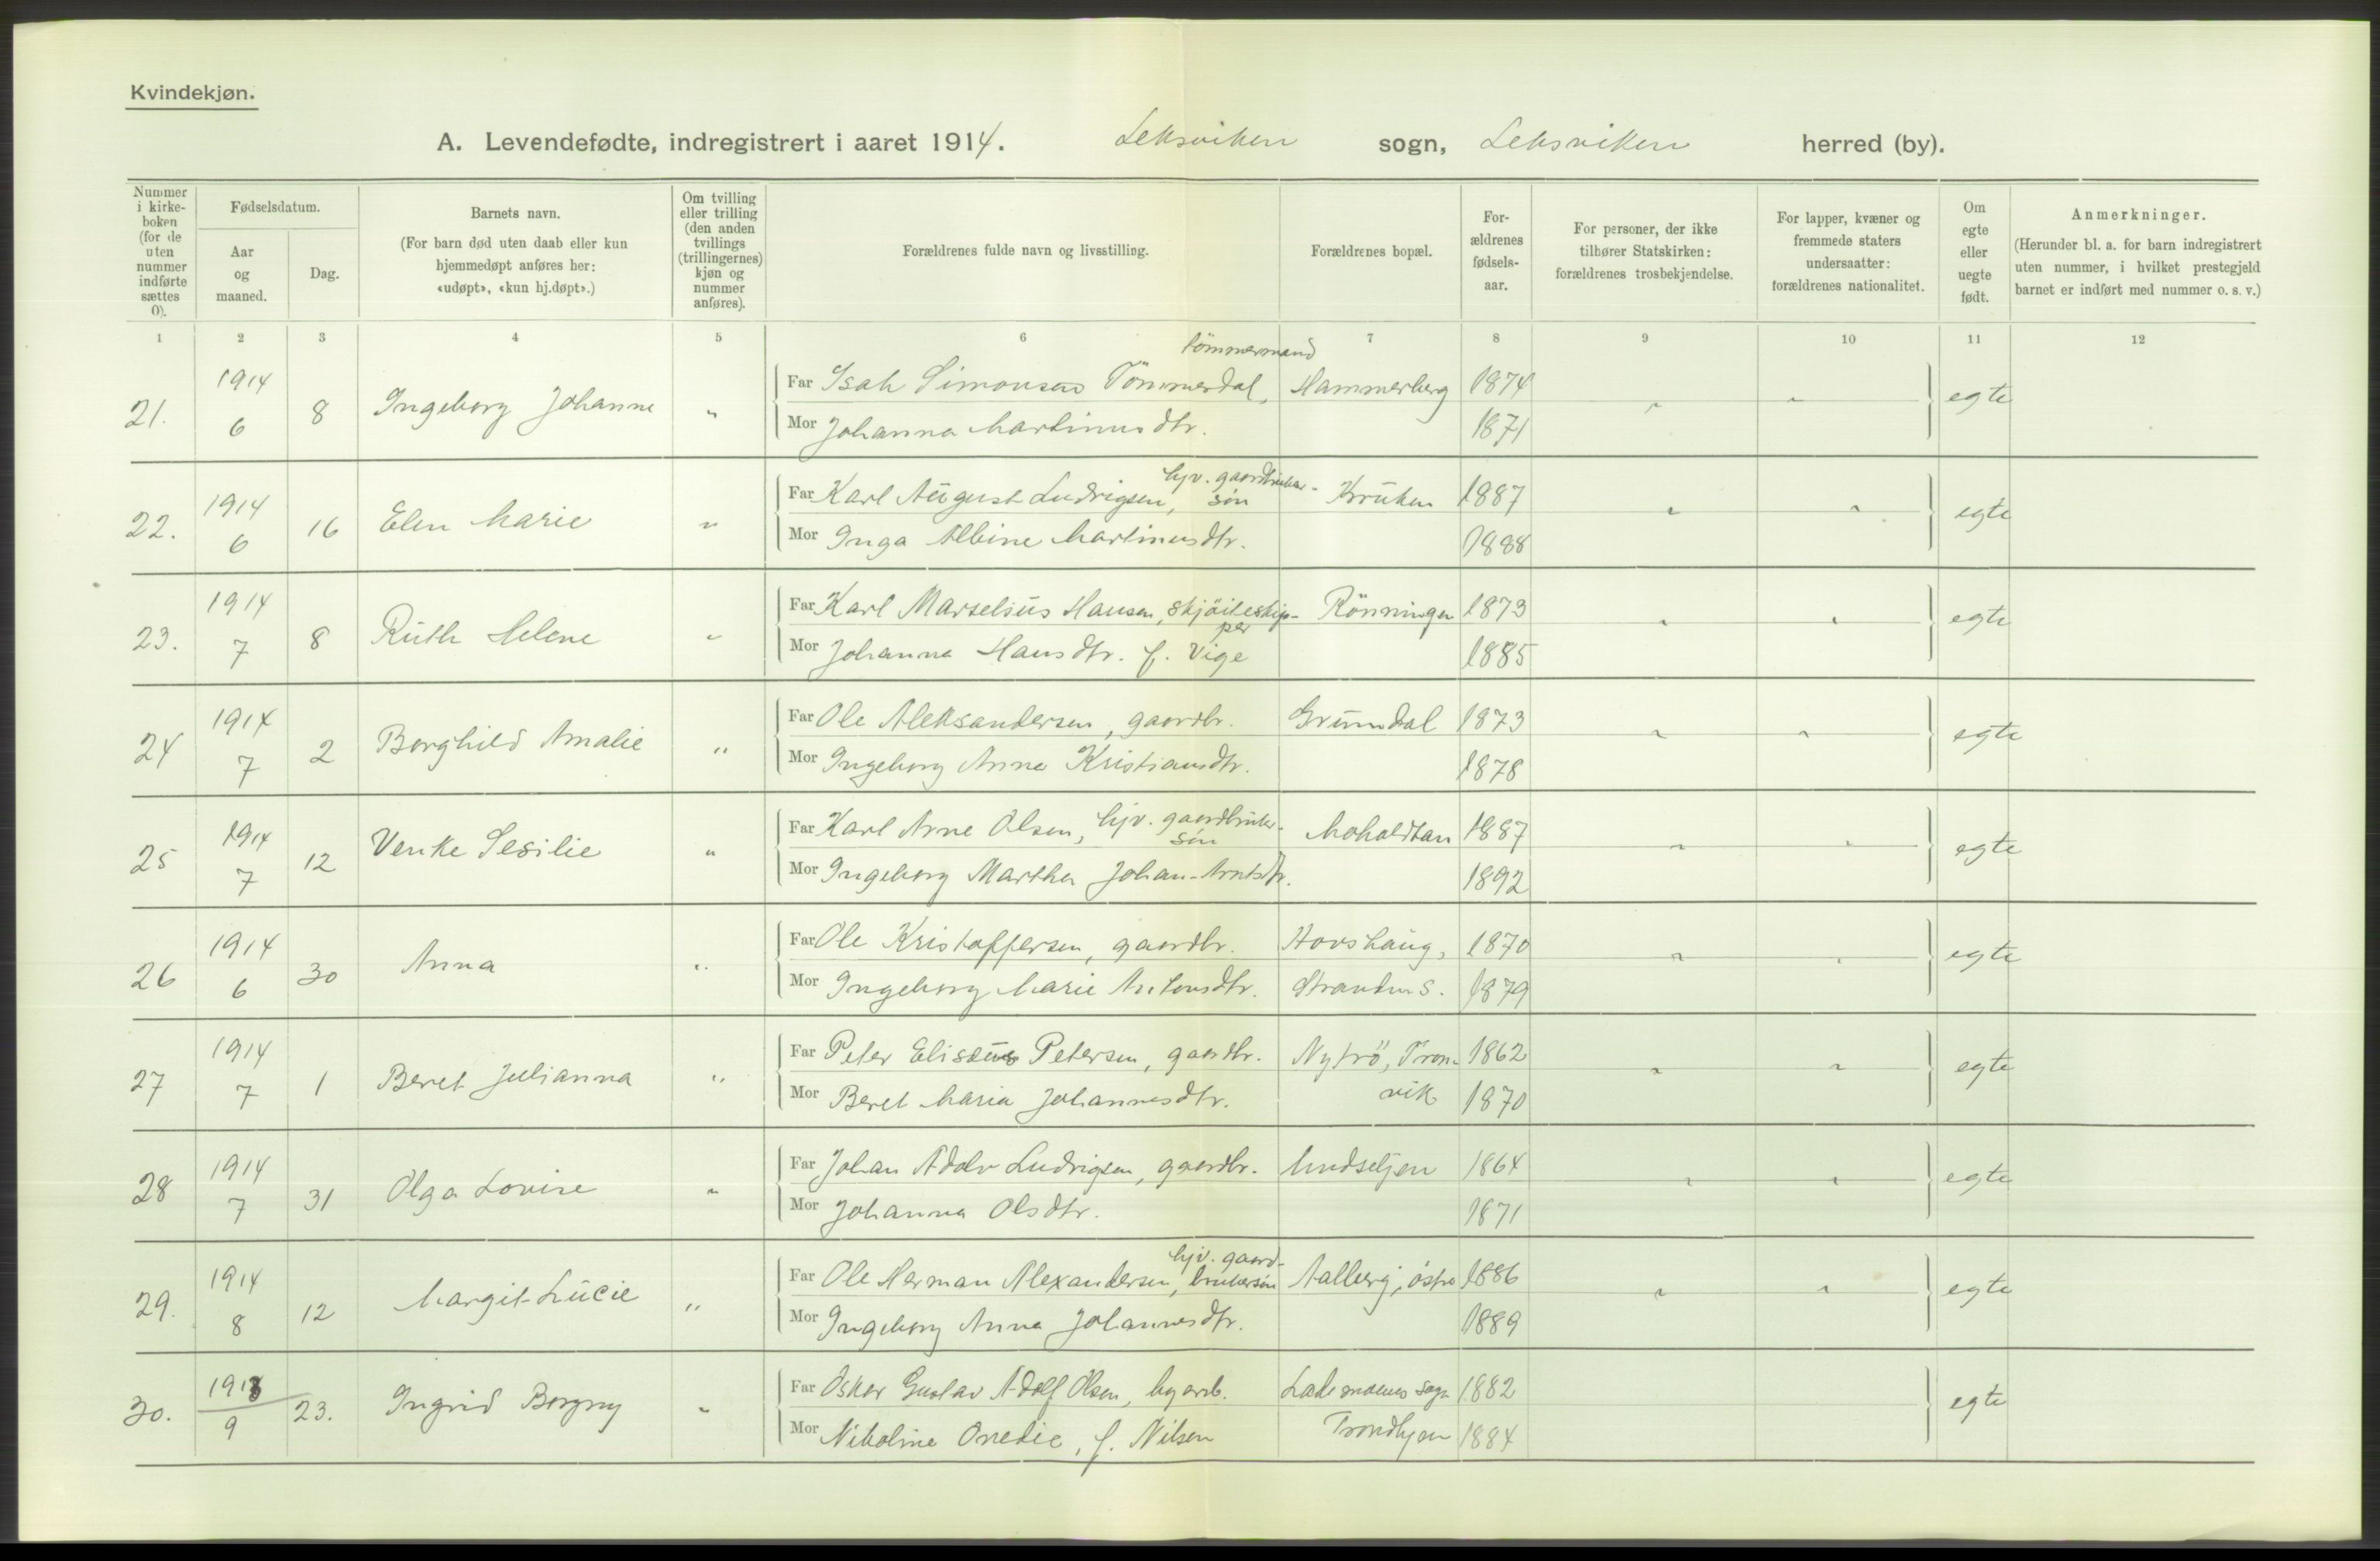 Kvindekjøn.
A. Levendefødte, indregistrert i aaret 1914. Leksviken sogn, Leksviken herred (by).
Nummer i kirke-boken (for de uten nummer indførte sættes 0).
Fødselsdatum.
Aar og maaned.
Dag.
Barnets navn.
(For barn død uten daab eller kun hjemmedøpt anføres her: «udøpt», «kun hj.døpt».)
Om tvilling eller trilling (den anden tvillings (trillingernes) kjøn og nummer anføres).
Forældrenes fulde navn og livsstilling.
Forældrenes bopæl.
For-ældrenes fødsels-aar.
For personer, der ikke tilhører Statskirken: forældrenes trosbekjendelse.
For lapper, kvæner og fremmede staters undersaatter: forældrenes nationalitet.
Om egte eller uegte født.
Anmerkninger.
(Herunder bl. a. for barn indregistrert uten nummer, i hvilket prestegjeld barnet er indført med nummer o. s. v.)
1 2 3 4 5 6 7 8 9 10 11 12
21. 1914 6 8 Ingeborg Johanne " Far Isak Simonsen Tömmerdal, tömmermand Hammerberg 1874 " " egte
Mor Johanna Martinusdtr. 1871
22. 1914 6 16 Elen Marie " Far Karl August Ludvigsen, hjv. gaardbruker-sön Kruken 1887 " " egte
Mor Inga Albine Martinusdtr. 1888
23. 1914 7 8 Ruth Helene " Far Karl Marselius Hansen, skjöiteskip-per Rönningen 1873 " " egte
Mor Johanna Hansdtr. f. Vige 1885
24 1914 7 2 Borghild Amalie " Far Ole Aleksandersen, gaardbr. Grundal 1873 " " egte
Mor Ingeborg Anna Kristiansdtr. 1878
25 1914 7 12 Venke Sesilie " Far Karl Arne Olsen, hjv. gaardbruker-sön Moholdtan 1887 " " egte
Mor Ingeborg Martha Johan-Arntsdtr. 1892
26 1914 6 30 Anna " Far Ole Kristoffersen, gaardbr. Hovshaug, 1870 " " egte
Mor Ingeborg Marie Antonsdtr. 1879
27 1914 7 1 Beret Julianna " Far Peter Elisæus Petersen, gaardbr. Nytrö, Tron- 1862 " " egte
Mor Beret Maria Johannesdtr. vik 1870
28 1914 7 31 Olga Lovise " Far Johan Adolv Ludvigsen, gaardbr. 1864 " " egte
Mor Johanna Olsdtr. 1871
29. 1914 8 12 Margit Lucie " Far Ole Herman Alexandersen, hjv. gaard-brukersön Aalberg, östre 1886 " " egte
Mor Ingeborg Anna Johannesdtr. 1889
30. 1913 9 23. Ingrid Borgny " Far Oskar Gustav Adolf Olsen, byarb. Lademoens sogn 1882 egte
Mor Nikoline Onedie, f. Nilsen Trondhjem 1884